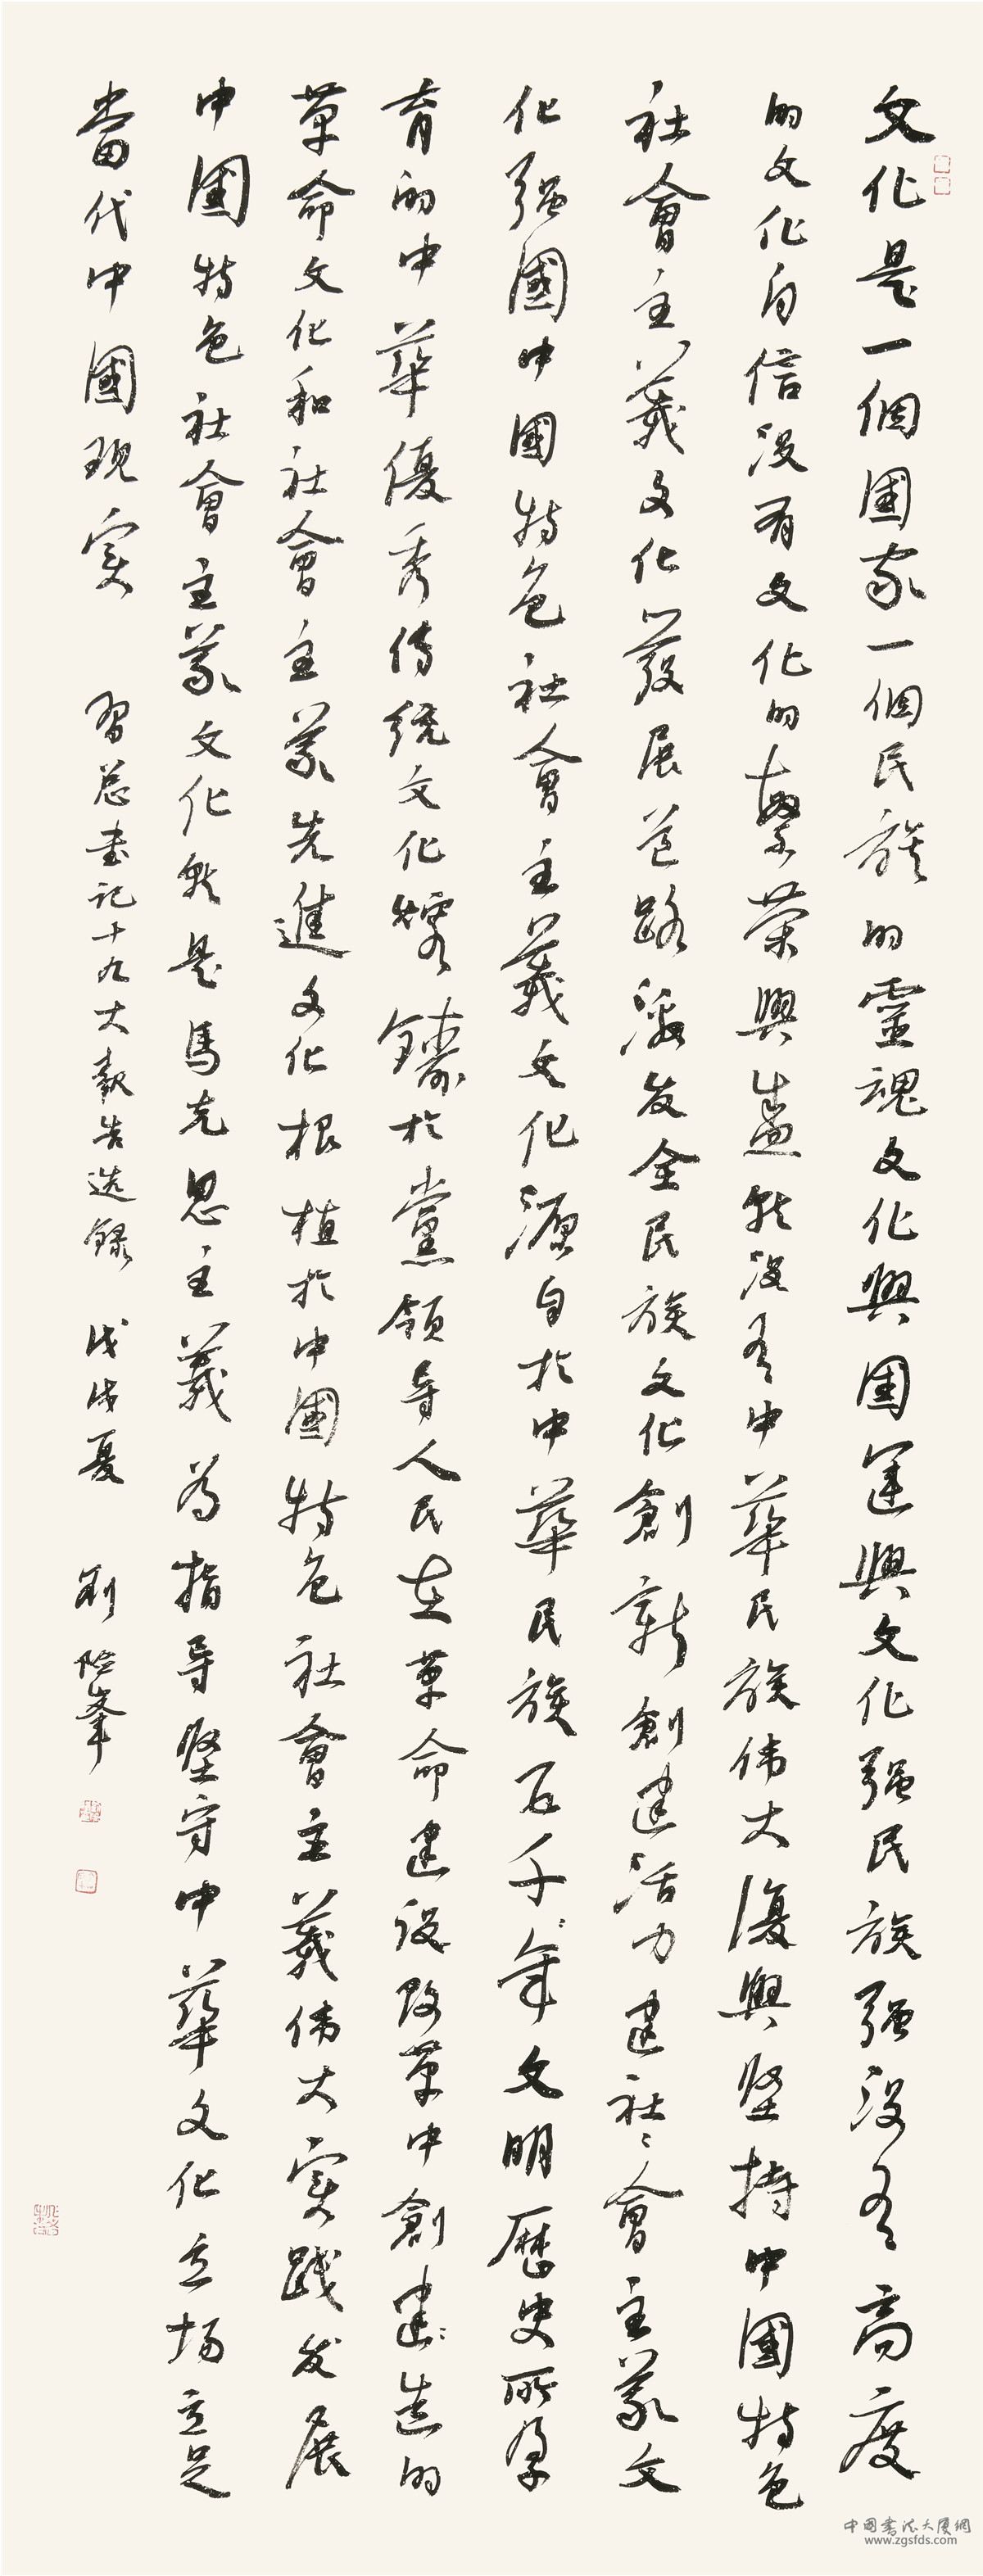 文化是一個國家一個民族的靈魂文化興國運興文化强民族强没有高度
的文化自信没有文化的繁荣興盛就没有中華民族伟大復興坚持中國特色
社會主義文化發展道路激发全民族文化創新創建活力建社〻會主義文
化强國中國特色社會主義文化源自於中華民族百千〻年文明歷史所孕
育的中華優秀传統文化熔鑄於黨領导人民在革命建設改革中創建〻造的
革命文化和社會主義先進文化根植於中國特色社會主義伟大实踐发展
中國特色社會主義文化就是馬克思主義為指导坚守中華文化立场立足
當代中國现实 習总書記十九大報告选録 戊戌夏 刘 峰
中国书法大厦網
www.zgsfds.com